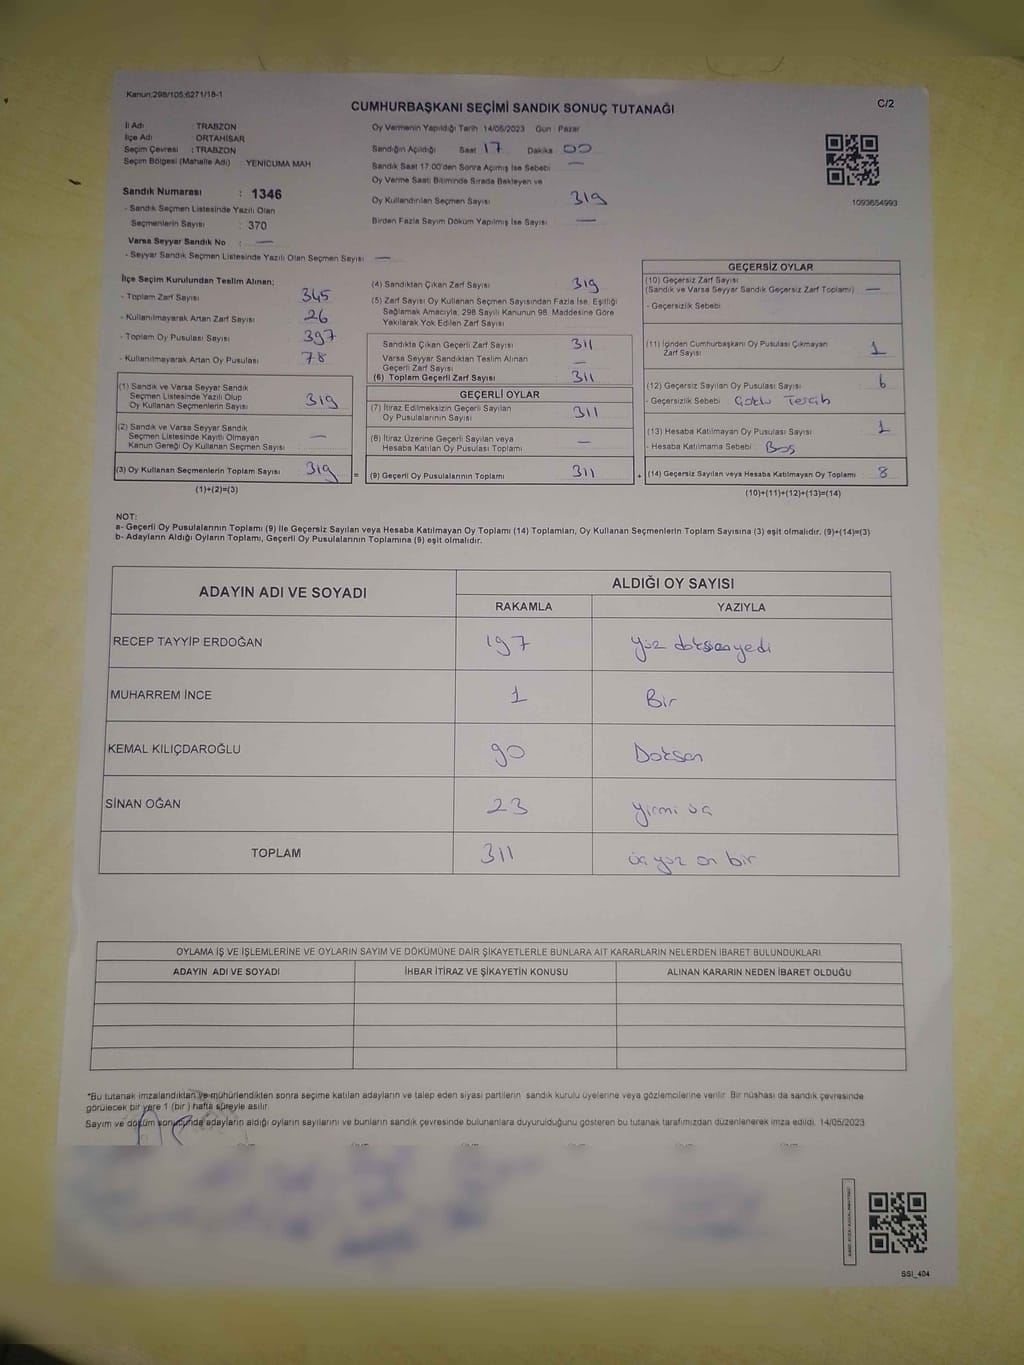 Kanun:298/105:6271/18-1
CUMHURBAŞKANI SEÇİMİ SANDIK SONUÇ TUTANAĞI
C/2
İl Adı : TRABZON
İlçe Adı : ORTAHİSAR
Seçim Çevresi : TRABZON
Seçim Bölgesi (Mahalle Adı) : YENİCUMA MAH
Sandık Numarası : 1346
- Sandık Seçmen Listesinde Yazılı Olan
Seçmenlerin Sayısı : 370
Varsa Seyyar Sandık No : —
- Seyyar Sandık Seçmen Listesinde Yazılı Olan Seçmen Sayısı : —
Oy Vermenin Yapıldığı Tarih : 14/05/2023 Gün : Pazar
Sandığın Açıldığı Saat 17 Dakika 00
Sandık Saat 17:00'den Sonra Açılmış İse Sebebi —
Oy Verme Saati Bitiminde Sırada Bekleyen ve
Oy Kullandırılan Seçmen Sayısı 319
Birden Fazla Sayım Döküm Yapılmış İse Sayısı —
1093654993
İlçe Seçim Kurulundan Teslim Alınan;
- Toplam Zarf Sayısı 345
- Kullanılmayarak Artan Zarf Sayısı 26
- Toplam Oy Pusulası Sayısı 397
- Kullanılmayarak Artan Oy Pusulası 78
(1) Sandık ve Varsa Seyyar Sandık
Seçmen Listesinde Yazılı Olup
Oy Kullanan Seçmenlerin Sayısı 319
(2) Sandık ve Varsa Seyyar Sandık
Seçmen Listesinde Kayıtlı Olmayan
Kanun Gereği Oy Kullanan Seçmen Sayısı —
(3) Oy Kullanan Seçmenlerin Toplam Sayısı 319
(1)+(2)=(3)
=
(4) Sandıktan Çıkan Zarf Sayısı 319
(5) Zarf Sayısı Oy Kullanan Seçmen Sayısından Fazla İse, Eşitliği
Sağlamak Amacıyla; 298 Sayılı Kanunun 98. Maddesine Göre
Yakılarak Yok Edilen Zarf Sayısı
Sandıkta Çıkan Geçerli Zarf Sayısı 311
Varsa Seyyar Sandıktan Teslim Alınan
Geçerli Zarf Sayısı —
(6) Toplam Geçerli Zarf Sayısı 311
GEÇERLİ OYLAR
(7) İtiraz Edilmeksizin Geçerli Sayılan
Oy Pusulalarının Sayısı 311
(8) İtiraz Üzerine Geçerli Sayılan veya
Hesaba Katılan Oy Pusulası Toplamı —
(9) Geçerli Oy Pusulalarının Toplamı 311
+
GEÇERSİZ OYLAR
(10) Geçersiz Zarf Sayısı
(Sandık ve Varsa Seyyar Sandık Geçersiz Zarf Toplamı) —
- Geçersizlik Sebebi
(11) İçinden Cumhurbaşkanı Oy Pusulası Çıkmayan
Zarf Sayısı 1
(12) Geçersiz Sayılan Oy Pusulası Sayısı 6
- Geçersizlik Sebebi Çoklu Tercih
(13) Hesaba Katılmayan Oy Pusulası Sayısı 1
- Hesaba Katılmama Sebebi Boş
(14) Geçersiz Sayılan veya Hesaba Katılmayan Oy Toplamı 8
(10)+(11)+(12)+(13)=(14)
NOT:
a- Geçerli Oy Pusulalarının Toplamı (9) ile Geçersiz Sayılan veya Hesaba Katılmayan Oy Toplamı (14) Toplamları, Oy Kullanan Seçmenlerin Toplam Sayısına (3) eşit olmalıdır. (9)+(14)=(3)
b- Adayların Aldığı Oyların Toplamı, Geçerli Oy Pusulalarının Toplamına (9) eşit olmalıdır.
ADAYIN ADI VE SOYADI
ALDIĞI OY SAYISI
RAKAMLA YAZIYLA
RECEP TAYYİP ERDOĞAN 197 yüz doksan yedi
MUHARREM İNCE 1 Bir
KEMAL KILIÇDAROĞLU 90 Doksan
SİNAN OĞAN 23 yirmi üç
TOPLAM 311 üç yüz on bir
OYLAMA İŞ VE İŞLEMLERİNE VE OYLARIN SAYIM VE DÖKÜMÜNE DAİR ŞİKAYETLERLE BUNLARA AİT KARARLARIN NELERDEN İBARET BULUNDUKLARI
ADAYIN ADI VE SOYADI İHBAR İTİRAZ VE ŞİKAYETİN KONUSU ALINAN KARARIN NEDEN İBARET OLDUĞU
*Bu tutanak imzalandıktan ve mühürlendikten sonra seçime katılan adayların ve talep eden siyasi partilerin sandık kurulu üyelerine veya gözlemcilerine verilir. Bir nüshası da sandık çevresinde
görülecek bir yere 1 (bir ) hafta süreyle asılır.
Sayım ve döküm sonucunda adayların aldığı oyların sayılarını ve bunların sandık çevresinde bulunanlara duyurulduğunu gösteren bu tutanak tarafımızdan düzenlenerek imza edildi. 14/05/2023
SSİ_404